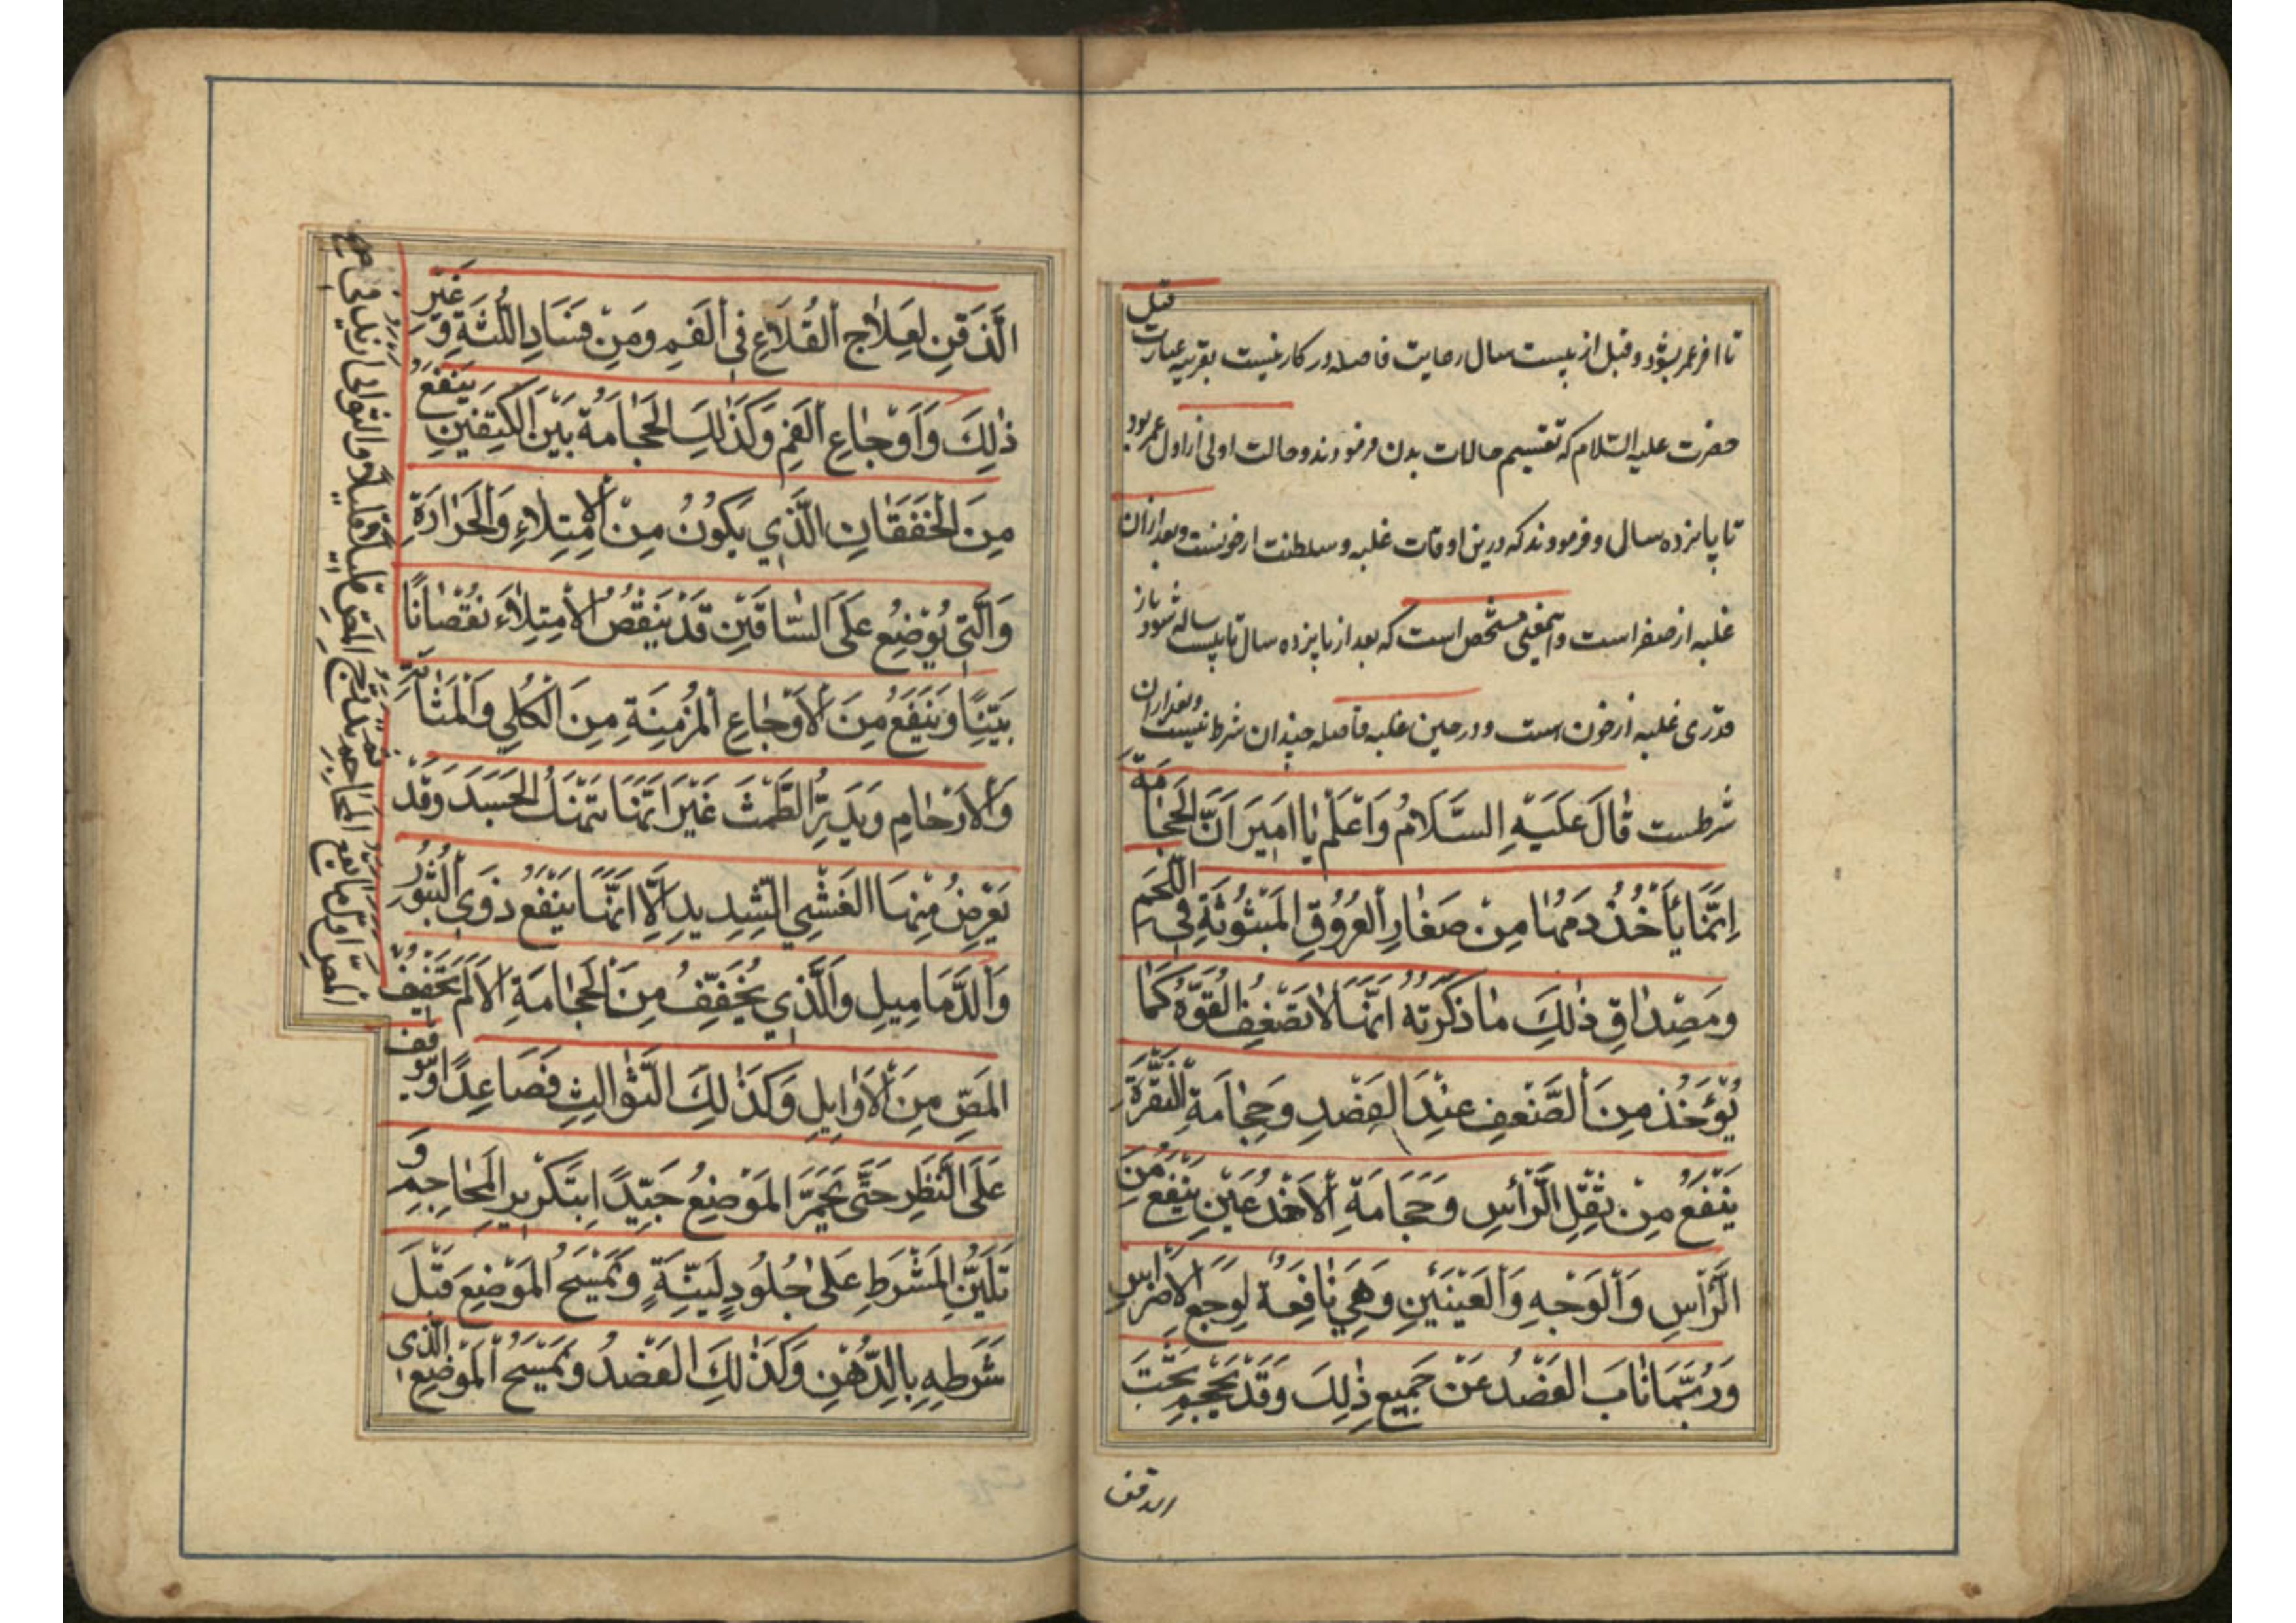 تا آخر عمر بشود و قبل از بیست سال رعایت فاصله در کار نیست بقرینه عبارت قبل
حضرت علیه السلام که تقسیم حالات بدن فرمودند و حالت اولی از اول عمر بود
تا پانزده سال و فرمودند که درین اوقات غلبه و سلطنت ازخونست و بعد ازان
غلبه از صفر است و اینمعنی مشخص است که بعد از پانزده سال تا بیست ساله شود باز
قدری غلبه از خون است و در حین غلبه فاصله چندان شرط نیست و بعد ازان
شرطست قَالَ عَلَيْهِ السَّلَامُ وَاعْلَمْ يَا امِيرَ انَّ الْحِجَامَةَ
اِنَّمَا يَأْخُذُ دَمَهَا مِنْ صِغَارِ الْعُرُوقِ الْمَبْثُوثَةِ فِي اللَّحْمِ
وَمِصْدَاقِ ذٰلِكَ مَا ذَكَرْتُهُ انَّهَا لَا تَضْعِفُ الْقُوَّةَ كَمَا
يُؤْخَذُ مِنَ الضَّعْفِ عِنْدَ الفَصْدِ وَحِجَامَةِ النُّقْرَةِ
يَنْفَعُ مِنْ ثِقْلِ الرَّأْسِ وَحَجَامَةِ الْاَخْدَعَيْنِ يَنْفَعُ مِنَ
الرَّأْسِ وَالْوَجْهِ وَالْعَيْنَيْنِ وَهِيَ نَافِعَةٌ لِوَجَعِ الْاَضْرَاسِ
وَرُبَّمَا نَابَ الفَصْدُ عَنْ جَمِيعِ ذٰلِكَ وَقَدْ يَحْجِمُ تَحْتَ
الدقن
الَّذَقَنِ لِعِلَاجِ الْقُلَاعِ فِي الْفَمِ وَمِنْ فَسَادِ اللَّثَةِ وَغَيْرِ
ذٰلِكَ وَاَوْجَاعِ الْفَمِ وَكَذٰلِكَ الْحَجَامَةُ بَيْنَ الْكَتِفَيْنِ يَنْفَعُ
مِنَ الْخَفَقَانِ الَّذِي يَكُونُ مِنَ الْاِمْتِلَاءِ وَالْحَرَارَةِ
وَالَّتِي يُوْضَعُ عَلَى السَّاقَيْنِ قَدْ يَنْقُصُ الْاِمْتِلَاءَ نُقْصَانًا
بَيِّنًا وَيَنْفَعُ مِنَ الْاَوْجَاعِ الْمُزْمِنَةِ مِنَ الْكُلِي وَالْمَثَانَةِ
وَالْاَرْحَامِ وَيَدِرُّ الطَّمْثَ غَيْرَ انَّهَا تَنْهَكُ الْجَسَدَ وَقَدْ
يَعْرِضُ مِنْهَا الْغَشْيِ الشَّدِيدِ اِلَّا انَّهَا يَنْفَعُ ذَوِي الْبُثُورِ
وَالدَّمَامِيلِ وَالَّذِي يُخَفِّفُ مِنَ الْحَجَامَةِ الْاَلَمَ تَخْفِيفُ
المَصِّ مِنَ الْاَوَايِلِ وَكَذٰلِكَ الثَّوَالِثِ فَصَاعِدًا
عَلَى النَّظَرِ حَتَّى يَحْمَرَّ الْمَوْضِعُ جَيِّدًا الْمَحَاجِمِ وَ
تَلَيُّنِ الْمَشْرَطِ عَلٰى جُلُودٍ لَيِّنَةٍ وَتَمْسَحُ الْمَوْضِعَ قَبْلَ
شَرْطِهِ بِالدُّهْنِ وَكَذٰلِكَ الفَصْدُ وَيَمْسَحُ الْمَوْضِعَ الَّذِي
المص اول ما يضع المحاجم ثم يدرج المص قليلا قليلا والثواني ازيد في